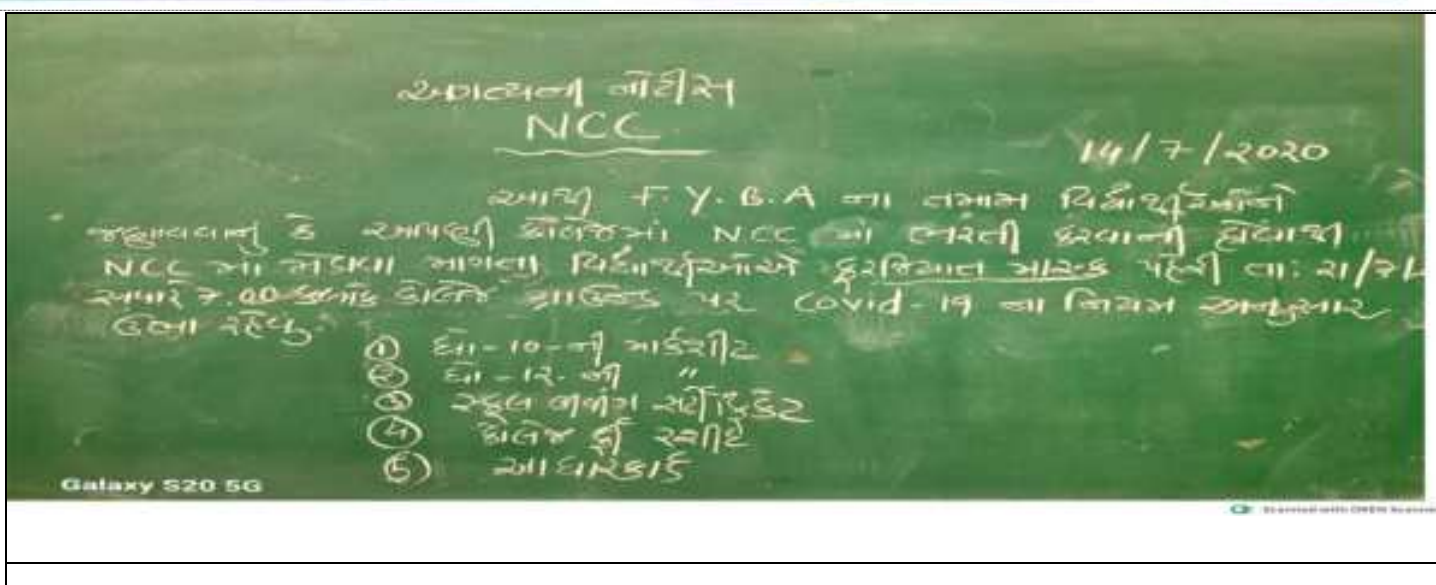 અગત્યની નોટીસ
NCC
14/7/2020
આથી F.Y.B.A ના તમામ વિદ્યાર્થીઓને
જણાવવાનું કે આપણી કોલેજમાં NCC ની ભરતી કરવાની હોવાથી
NCC માં જોડાવા માગતા વિદ્યાર્થીઓએ ફરજિયાત માસ્ક પહેરી તા: 21/7/
સવારે 7.00 કલાકે કોલેજ ગ્રાઉન્ડ પર Covid-19 ના નિયમ અનુસાર
ઉભા રહેવુ.
① ધો-10-ની માર્કશીટ
② ધો-12-ની "
③ સ્કુલ લીવીંગ સર્ટીફિકેટ
④ કોલેજ ફી રસીદ
⑤ આધારકાર્ડ
Galaxy S20 5G
Scanned with OKEN Scanner